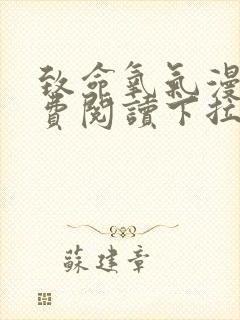 致命氧氣漫
費閱讀下拉
蘇建章